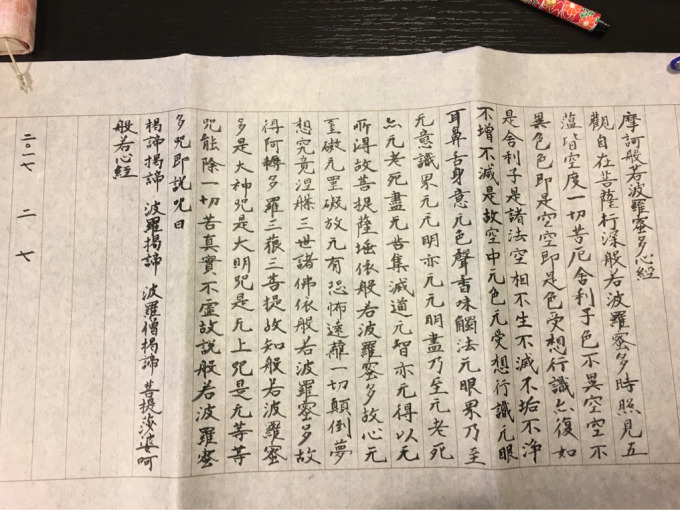 摩訶般若波羅蜜多心經
觀自在菩薩行深般若波羅蜜多時照見五
蘊皆空度一切苦厄舍利子色不異空空不
異色色即是空空即是色受想行識亦復如
是舍利子是諸法空相不生不滅不垢不淨
不增不減是故空中无色无受想行識无眼
耳鼻舌身意无色聲香味觸法无眼界乃至
无意識界无无明亦无无明盡乃至无老死
亦无老死盡无苦集滅道无智亦无得以无
所得故菩提薩埵依般若波羅蜜多故心无
罣礙无罣礙故无有恐怖遠離一切顛倒夢
想究竟涅槃三世諸佛依般若波羅蜜多故
得阿耨多羅三藐三菩提故知般若波羅蜜
多是大神咒是大明咒是无上咒是无等等
咒能除一切苦真實不虛故說般若波羅蜜
多咒即說咒曰
揭諦揭諦 波羅揭諦 波羅僧揭諦 菩提莎婆呵
般若心經
二〇一七 二 七